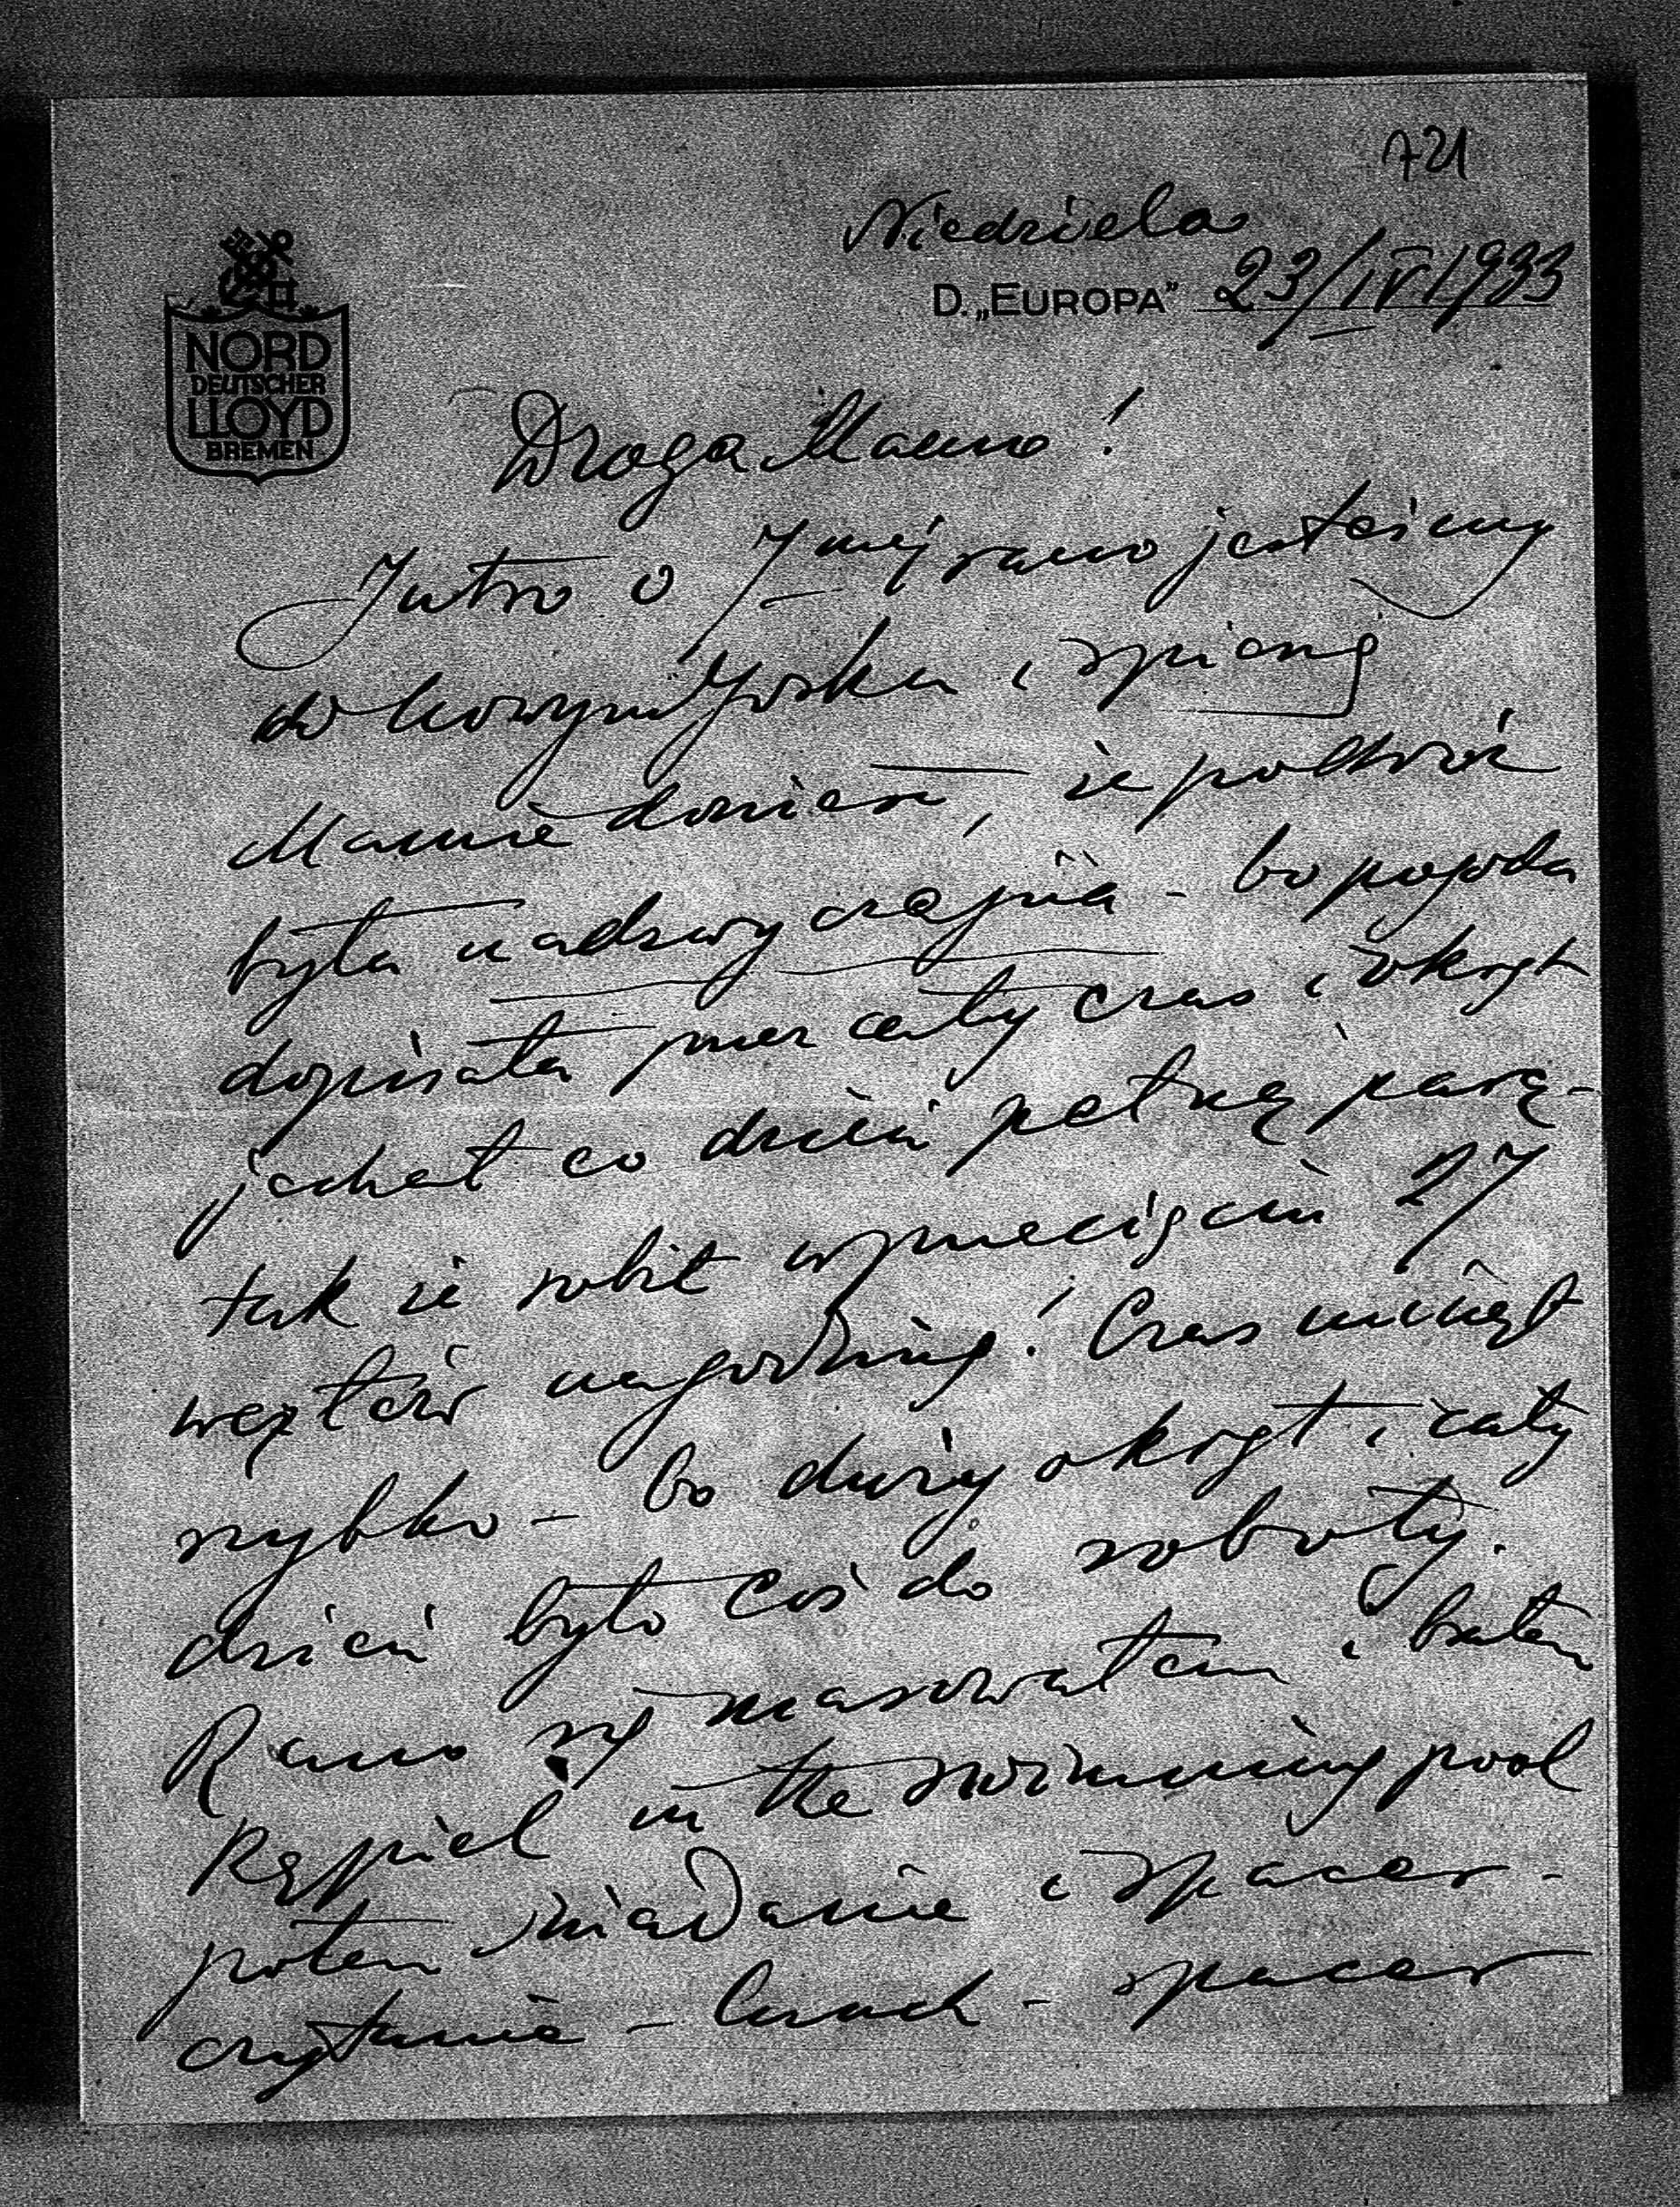 721
Niedziela
D. „EUROPA" 23/IV 1933
NORD
DEUTSCHER
LLOYD
BREMEN
Droga Mamo!
Jutro o 7mej rano jesteśmy
w Nowym Yorku i spieszę
Mamie donieść, że podróż
była nadzwyczajna - bo pogoda
dopisała przez cały czas i okręt
jechał co dzień pełną parą -
tak że robił w przecięciu 27
węzłów na godzinę! Czas minął
szybko - bo duży okręt i cały
dzień było coś do roboty.
Rano się masowałem i brałem
kąpiel in the swimming pool
potem śniadanie i spacer -
czytanie - lunch - spacer